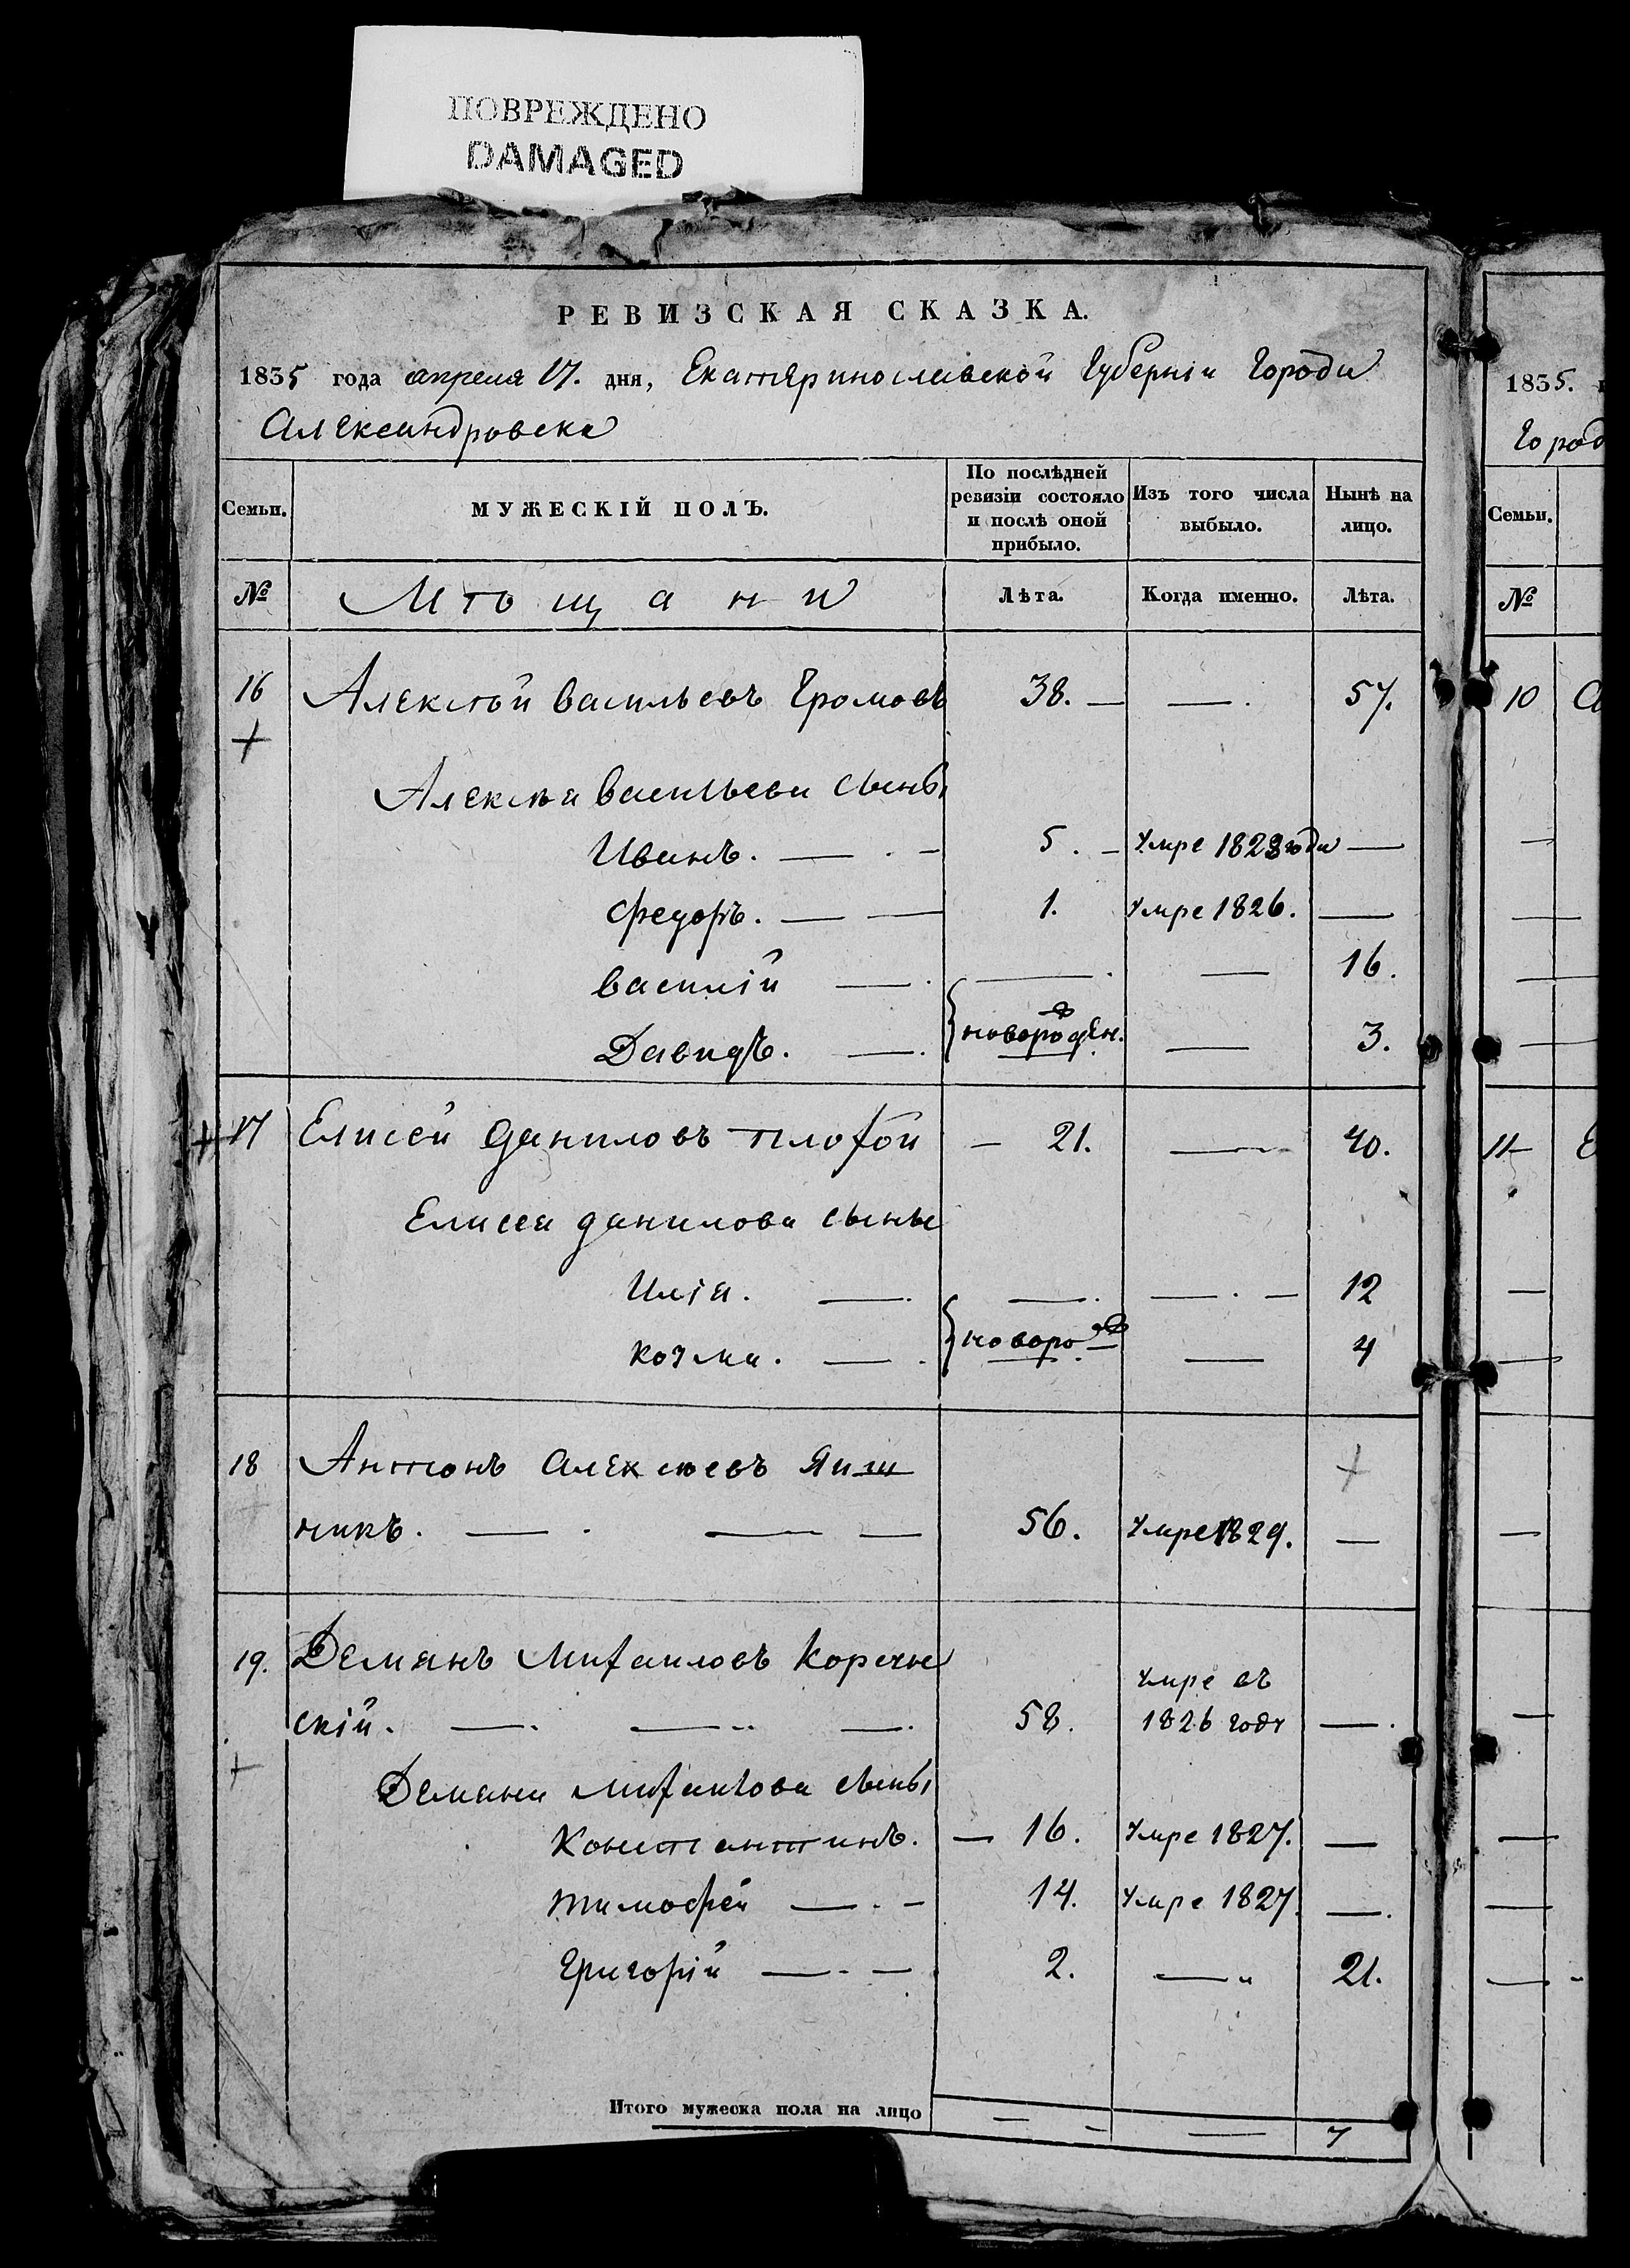 ПОВРЕЖДЕНО
DAMAGED
РЕВИЗСКАЯ СКАЗКА.
1835 года апреля 17. дня, Екатеринославской Губерніи Города
Александровска
Семьи.
МУЖЕСКІЙ ПОЛЪ.
По послѣдней ревизіи состояло и послѣ оной прибыло.
Изъ того числа выбыло.
Нынѣ на лицо.
№ Мѣщани Лѣта. Когда именно. Лѣта.
16 Алексѣй Васильевъ Громовъ 38. — — . 57.
+
Алексѣя Васильева сыны
Иванъ. — . — 5. — умре 1828 года —
Федоръ. — — 1. умре 1826. —
Василій — . — . — 16.
Давидъ. — . { новорожден. — 3.
+ 17 Елисей Даниловъ плохой — 21. — 40.
Елисея Данилова сыны
Илія. — . — . — . — 12
Козма. — . { новорож — 4
18 Антонъ Алексѣевъ Яиш +
никъ. — . — — 56. умре 1829. —
19. Демянъ Михаиловъ Корсун
умре въ
скій. — . — .. — . 58. 1826 году — .
+
Демяна Михаилова сыны
Константинъ. — 16. умре 1827. —
Тимофей — . — 14. умре 1827. — .
Григорій — . — 2. — „ 21.
Итого мужеска пола на лицо — — — 7
1835. г
Город
Семьи.
№
10 А
11 Е